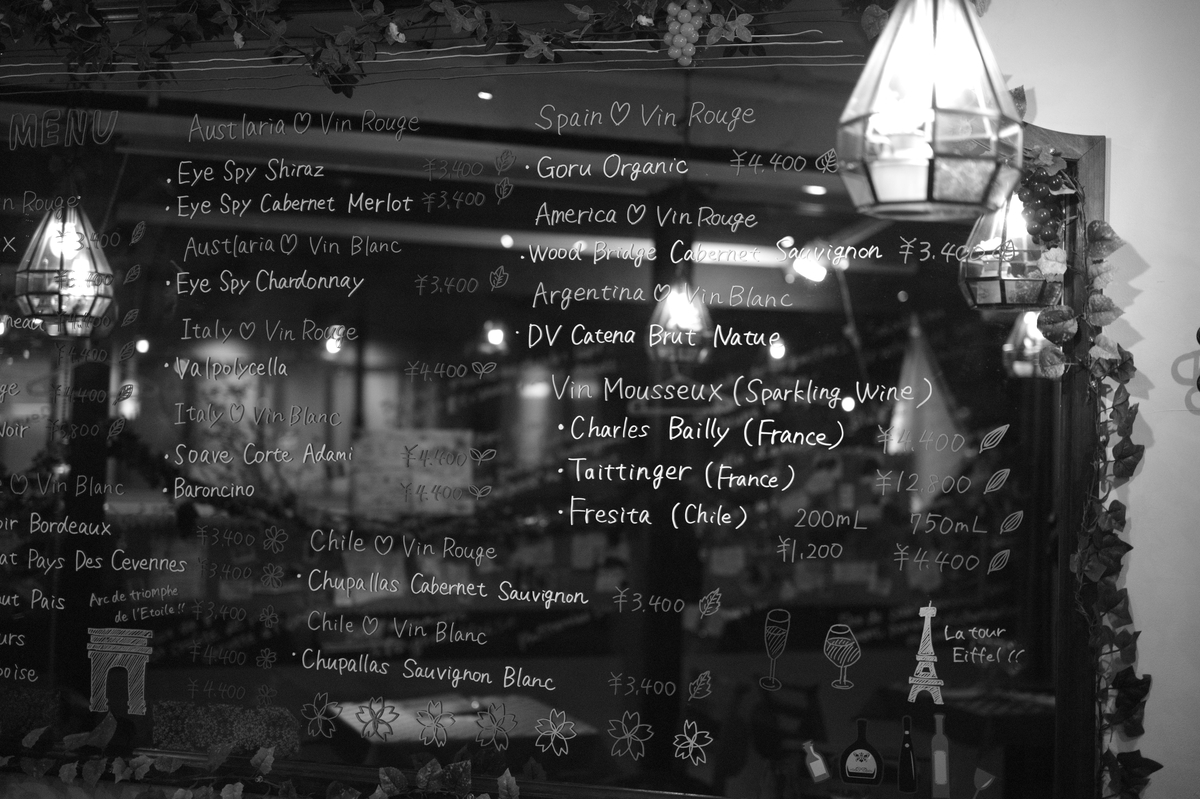 MENU
n Rouge
x ¥3,400
neau
¥4,400
ge
Noir ¥3,800
♡ Vin Blanc
oir Bordeaux ¥3,400
at Pays Des Cevennes ¥3,400
out Pais ¥3,400
urs ¥4,400
boise ¥4,400
Arc de triomphe
de l'Etoile!!
Austlaria ♡ Vin Rouge
・Eye Spy Shiraz ¥3,400
・Eye Spy Cabernet Merlot ¥3,400
Austlaria ♡ Vin Blanc
・Eye Spy Chardonnay ¥3,400
Italy ♡ Vin Rouge
・Valpolycella ¥4,400
Italy ♡ Vin Blanc
・Soave Corte Adami ¥4,400
・Baroncino ¥4,400
Chile ♡ Vin Rouge
・Chupallas Cabernet Sauvignon ¥3,400
Chile ♡ Vin Blanc
・Chupallas Sauvignon Blanc ¥3,400
Spain ♡ Vin Rouge
・Goru Organic ¥4,400
America ♡ Vin Rouge
・Wood Bridge Cabernet Sauvignon ¥3,400
Argentina ♡ Vin Blanc
・DV Catena Brut Natue
Vin Mousseux (Sparkling Wine)
・Charles Bailly (France) ¥4,400
・Taittinger (France) ¥12,800
・Fresita (Chile) 200mL 750mL
¥1,200 ¥4,400
La tour
Eiffel!!